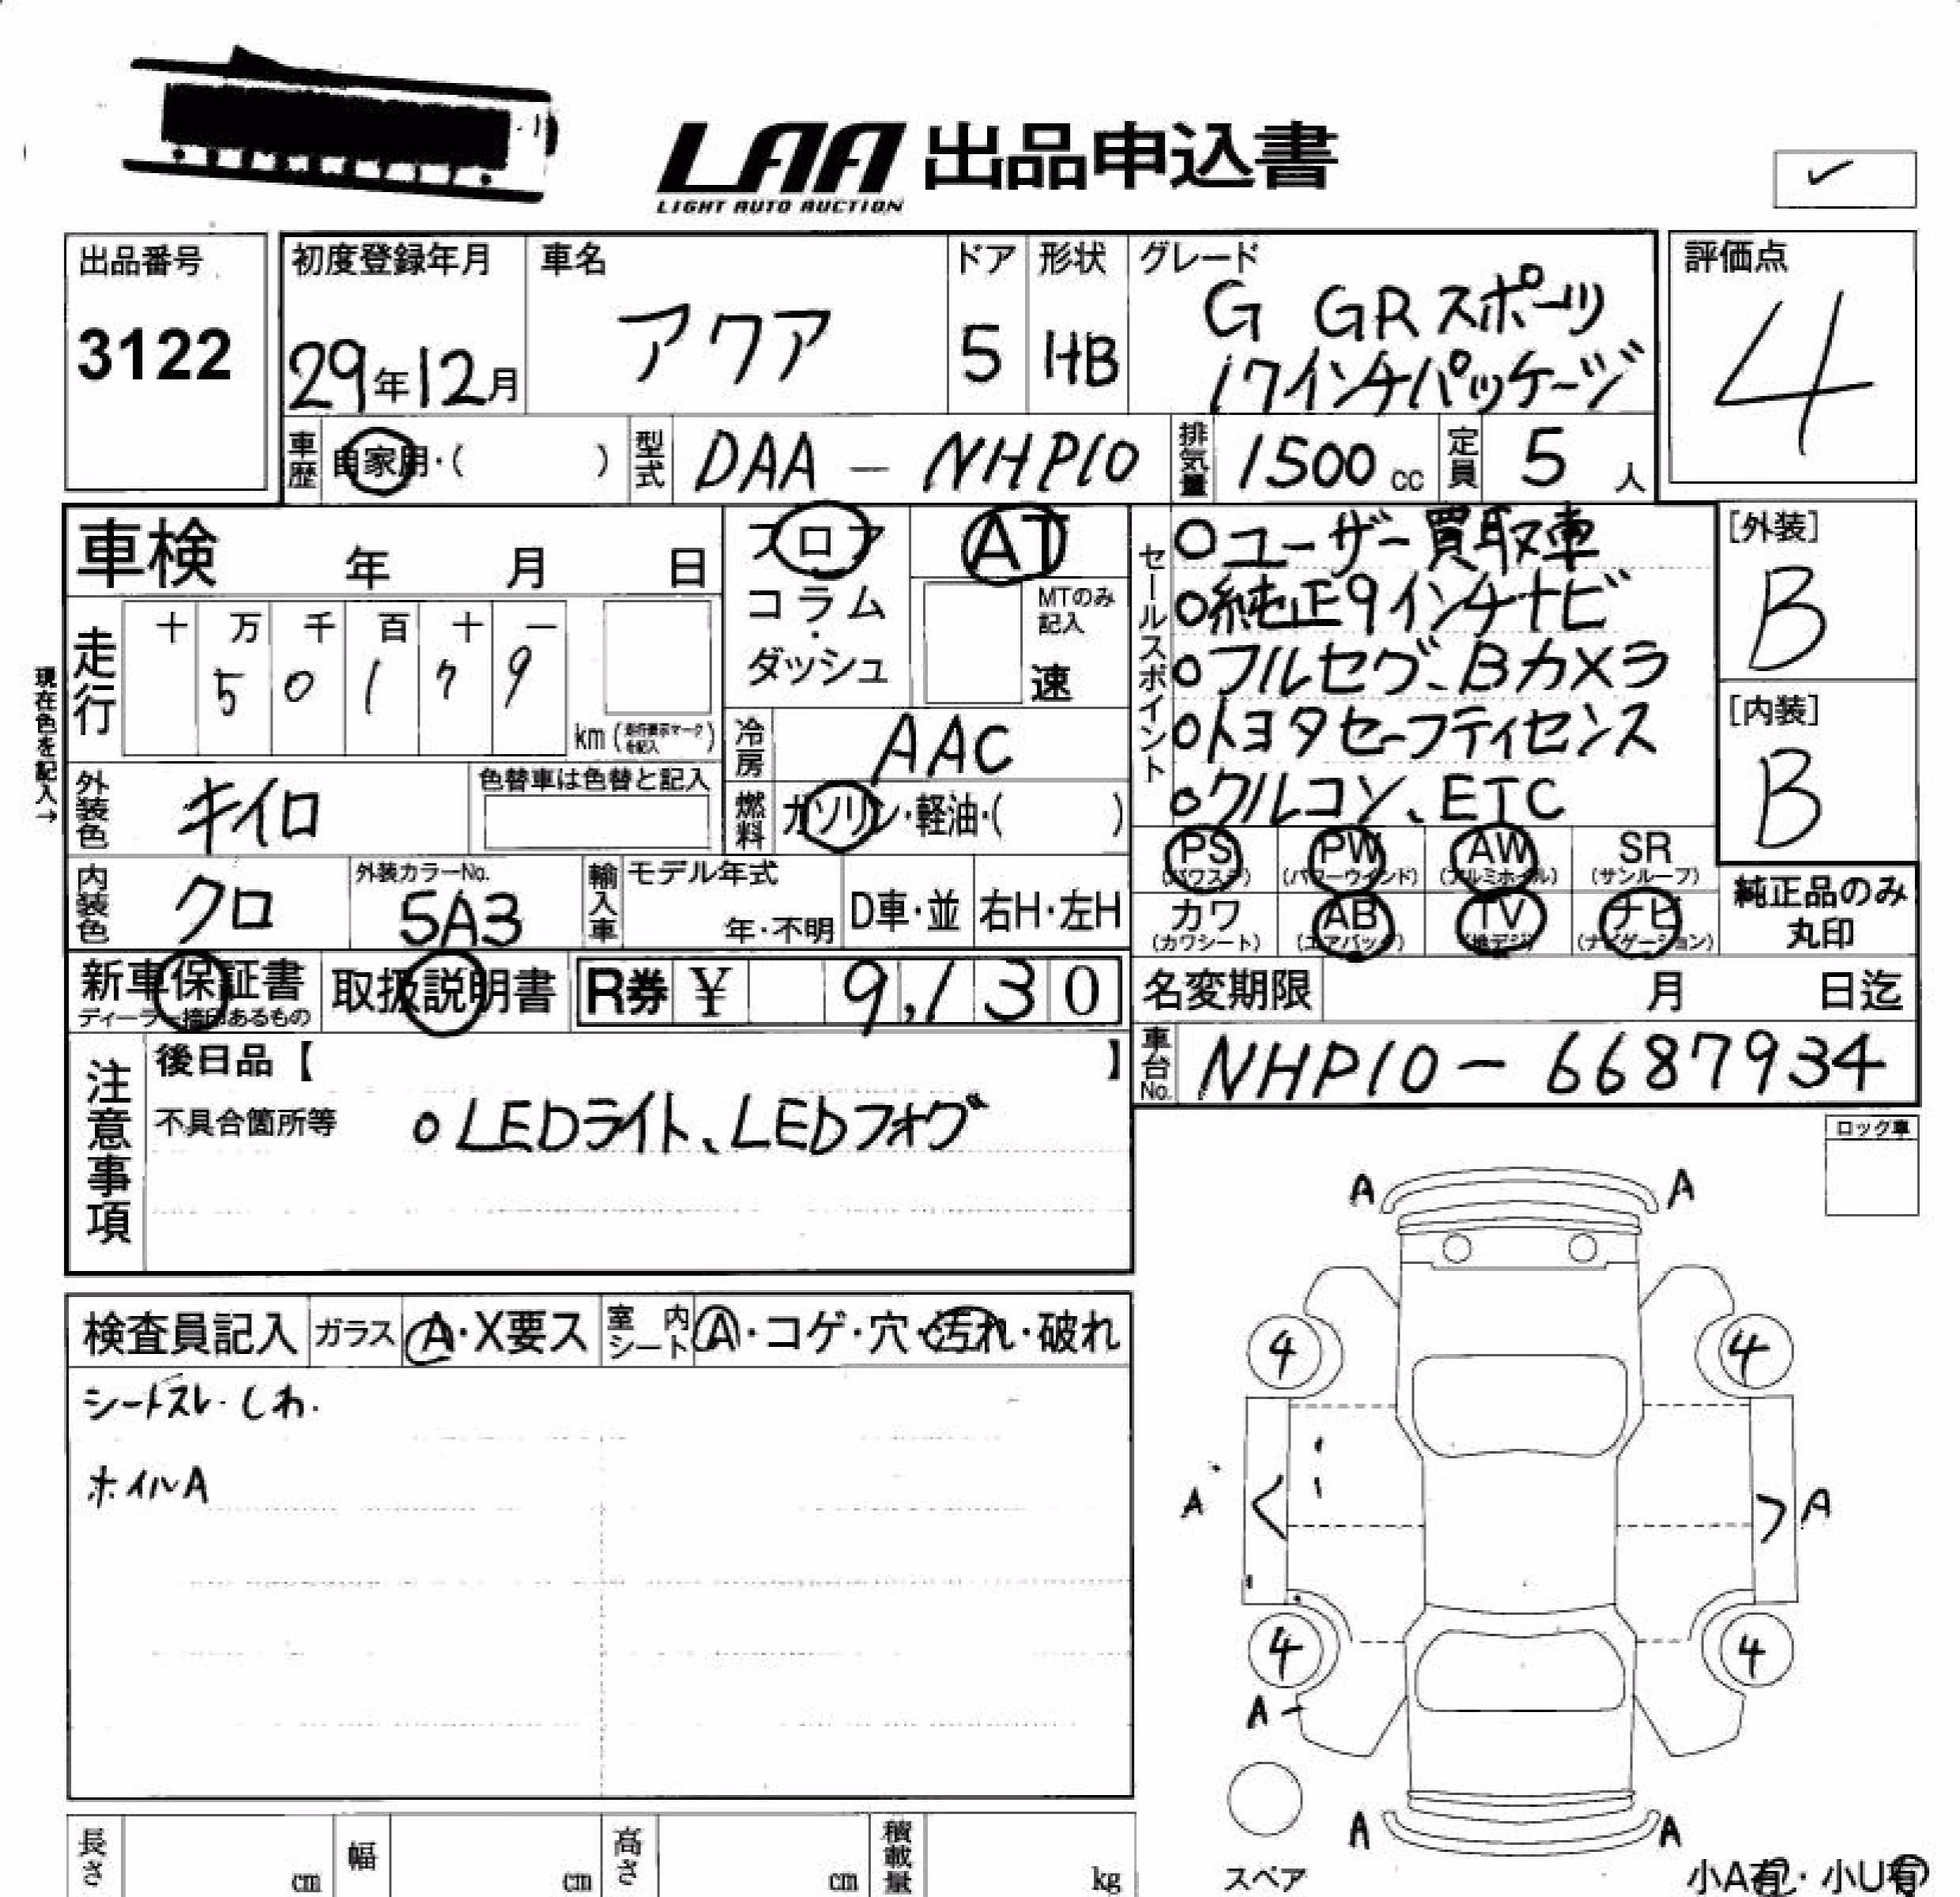 LAA 出品申込書
LIGHT AUTO AUCTION
出品番号
3122
初度登録年月
29年12月
車名
アクア
ドア
5
形状
HB
グレード
G GRスポーツ
17インチパッケージ
評価点
4
車歴
自家用・( )
型式
DAA - NHP10
排気量
1500 cc
定員
5 人
車検 年 月 日
フロア
・
コラム
・
ダッシュ
AT
MTのみ
記入
速
セールスポイント
○ユーザー買取車
○純正9インチナビ
○フルセグ、Bカメラ
○トヨタセーフティセンス
○クルコン、ETC
[外装]
B
[内装]
B
現在色を記入→
走行
十 万 千 百 十 一
5 0 1 7 9
km (走行表示マークを記入)
冷房
AAC
燃料
ガソリン・軽油・( )
外装色
キイロ
色替車は色替と記入
内装色
クロ
外装カラーNo.
5A3
輸入車
モデル年式
年・不明
D車・並
右H・左H
PS
(パワステ)
PW
(パワーウインド)
AW
(アルミホイル)
SR
(サンルーフ)
カワ
(カワシート)
AB
(エアバック)
TV
(地デジ)
ナビ
(ナビゲーション)
純正品のみ
丸印
新車保証書
ディーラー捺印あるもの
取扱説明書
R券 ¥ 9,130
名変期限 月 日迄
車台No.
NHP10-6687934
注意事項
後日品【 】
不具合箇所等
○LEDライト、LEDフォグ
ロック車
検査員記入
ガラス
A・X要ス
室内シート
A・コゲ・穴・汚れ・破れ
シートスレ・しわ.
ホイルA
A A
4 4
A A
4 4
A
A A
スペア
小A有・小U有
長さ cm
幅 cm
高さ cm
積載量 kg